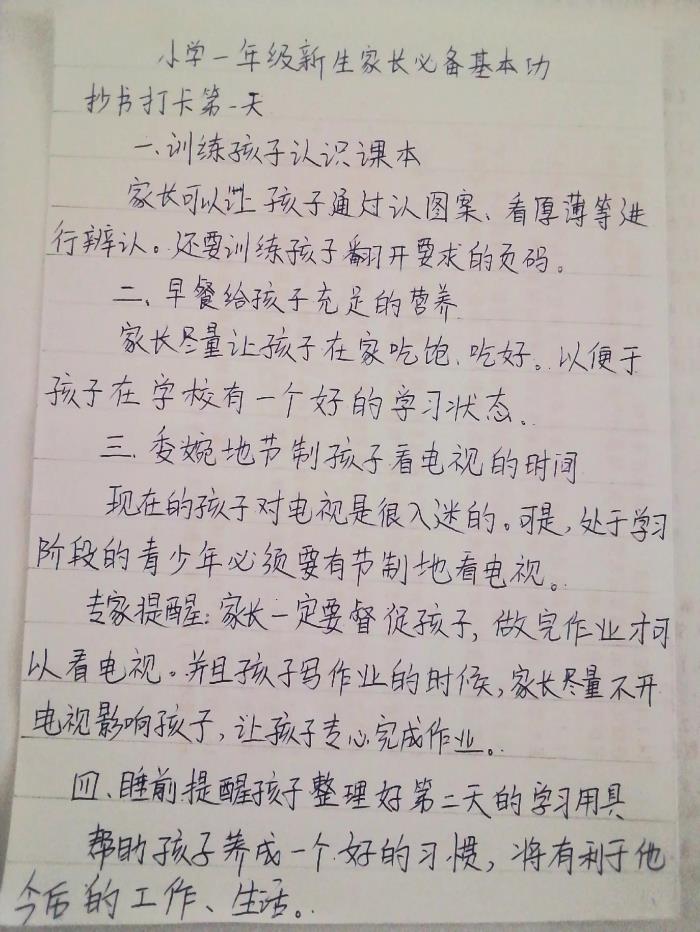 小学一年级新生家长必备基本功
抄书打卡第一天
一、训练孩子认识课本
家长可以让孩子通过认图案、看厚薄等进
行辨认。还要训练孩子翻开要求的页码。
二、早餐给孩子充足的营养
家长尽量让孩子在家吃饱、吃好。以便于
孩子在学校有一个好的学习状态。
三、委婉地节制孩子看电视的时间
现在的孩子对电视是很入迷的。可是,处于学习
阶段的青少年必须要有节制地看电视。
专家提醒:家长一定要督促孩子,做完作业才可
以看电视。并且孩子写作业的时候,家长尽量不开
电视影响孩子,让孩子专心完成作业。
四、睡前提醒孩子整理好第二天的学习用具
帮助孩子养成一个好的习惯,将有利于他
今后的工作、生活。